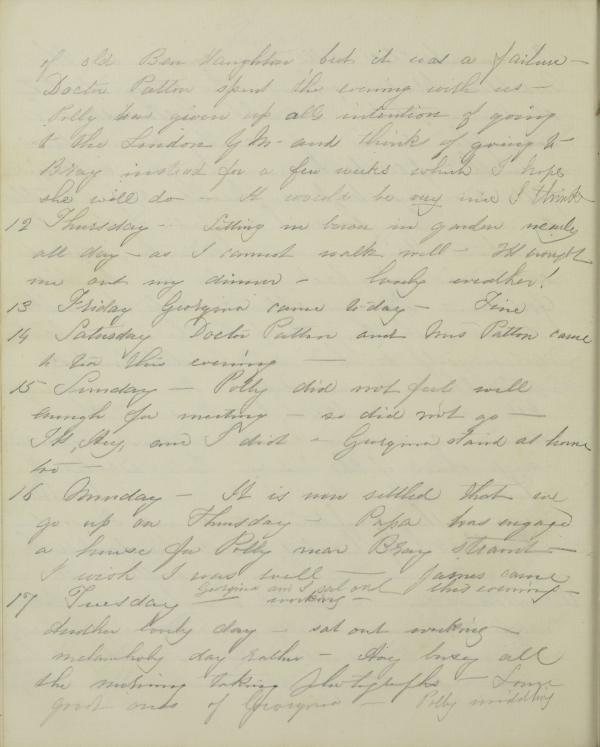 of old Ben Haughton but it was a failure –
Doctor Patton spent the evening with us –
Polly has given up all intention of going
to the London Y M – and thinks of going to
Bray instead for a few weeks which I hope
she will do – It would be very nice I think
12 Thursday – Sitting in garden nearly
all day – as I cannot walk well – brought
me out my dinner – lovely weather!
13 Friday Georgina came today – Fine
14 Saturday Doctor Patton and Mrs Patton came
to tea this evening —
15 Sunday – Polly did not feel well
enough for meeting – so did not go –
and I did – Georgina staid at home
too –
16 Monday – It is now settled that we
go up on Thursday – Papa has engaged
a house for Polly near Bray strand –
I wish I was well – James came
this evening –
17 Tuesday Georgina and I sat out working –
Another lovely day – sat out working –
melancholy day rather – busy all
the morning taking photographs – Some
good ones of Georgina – Polly middling